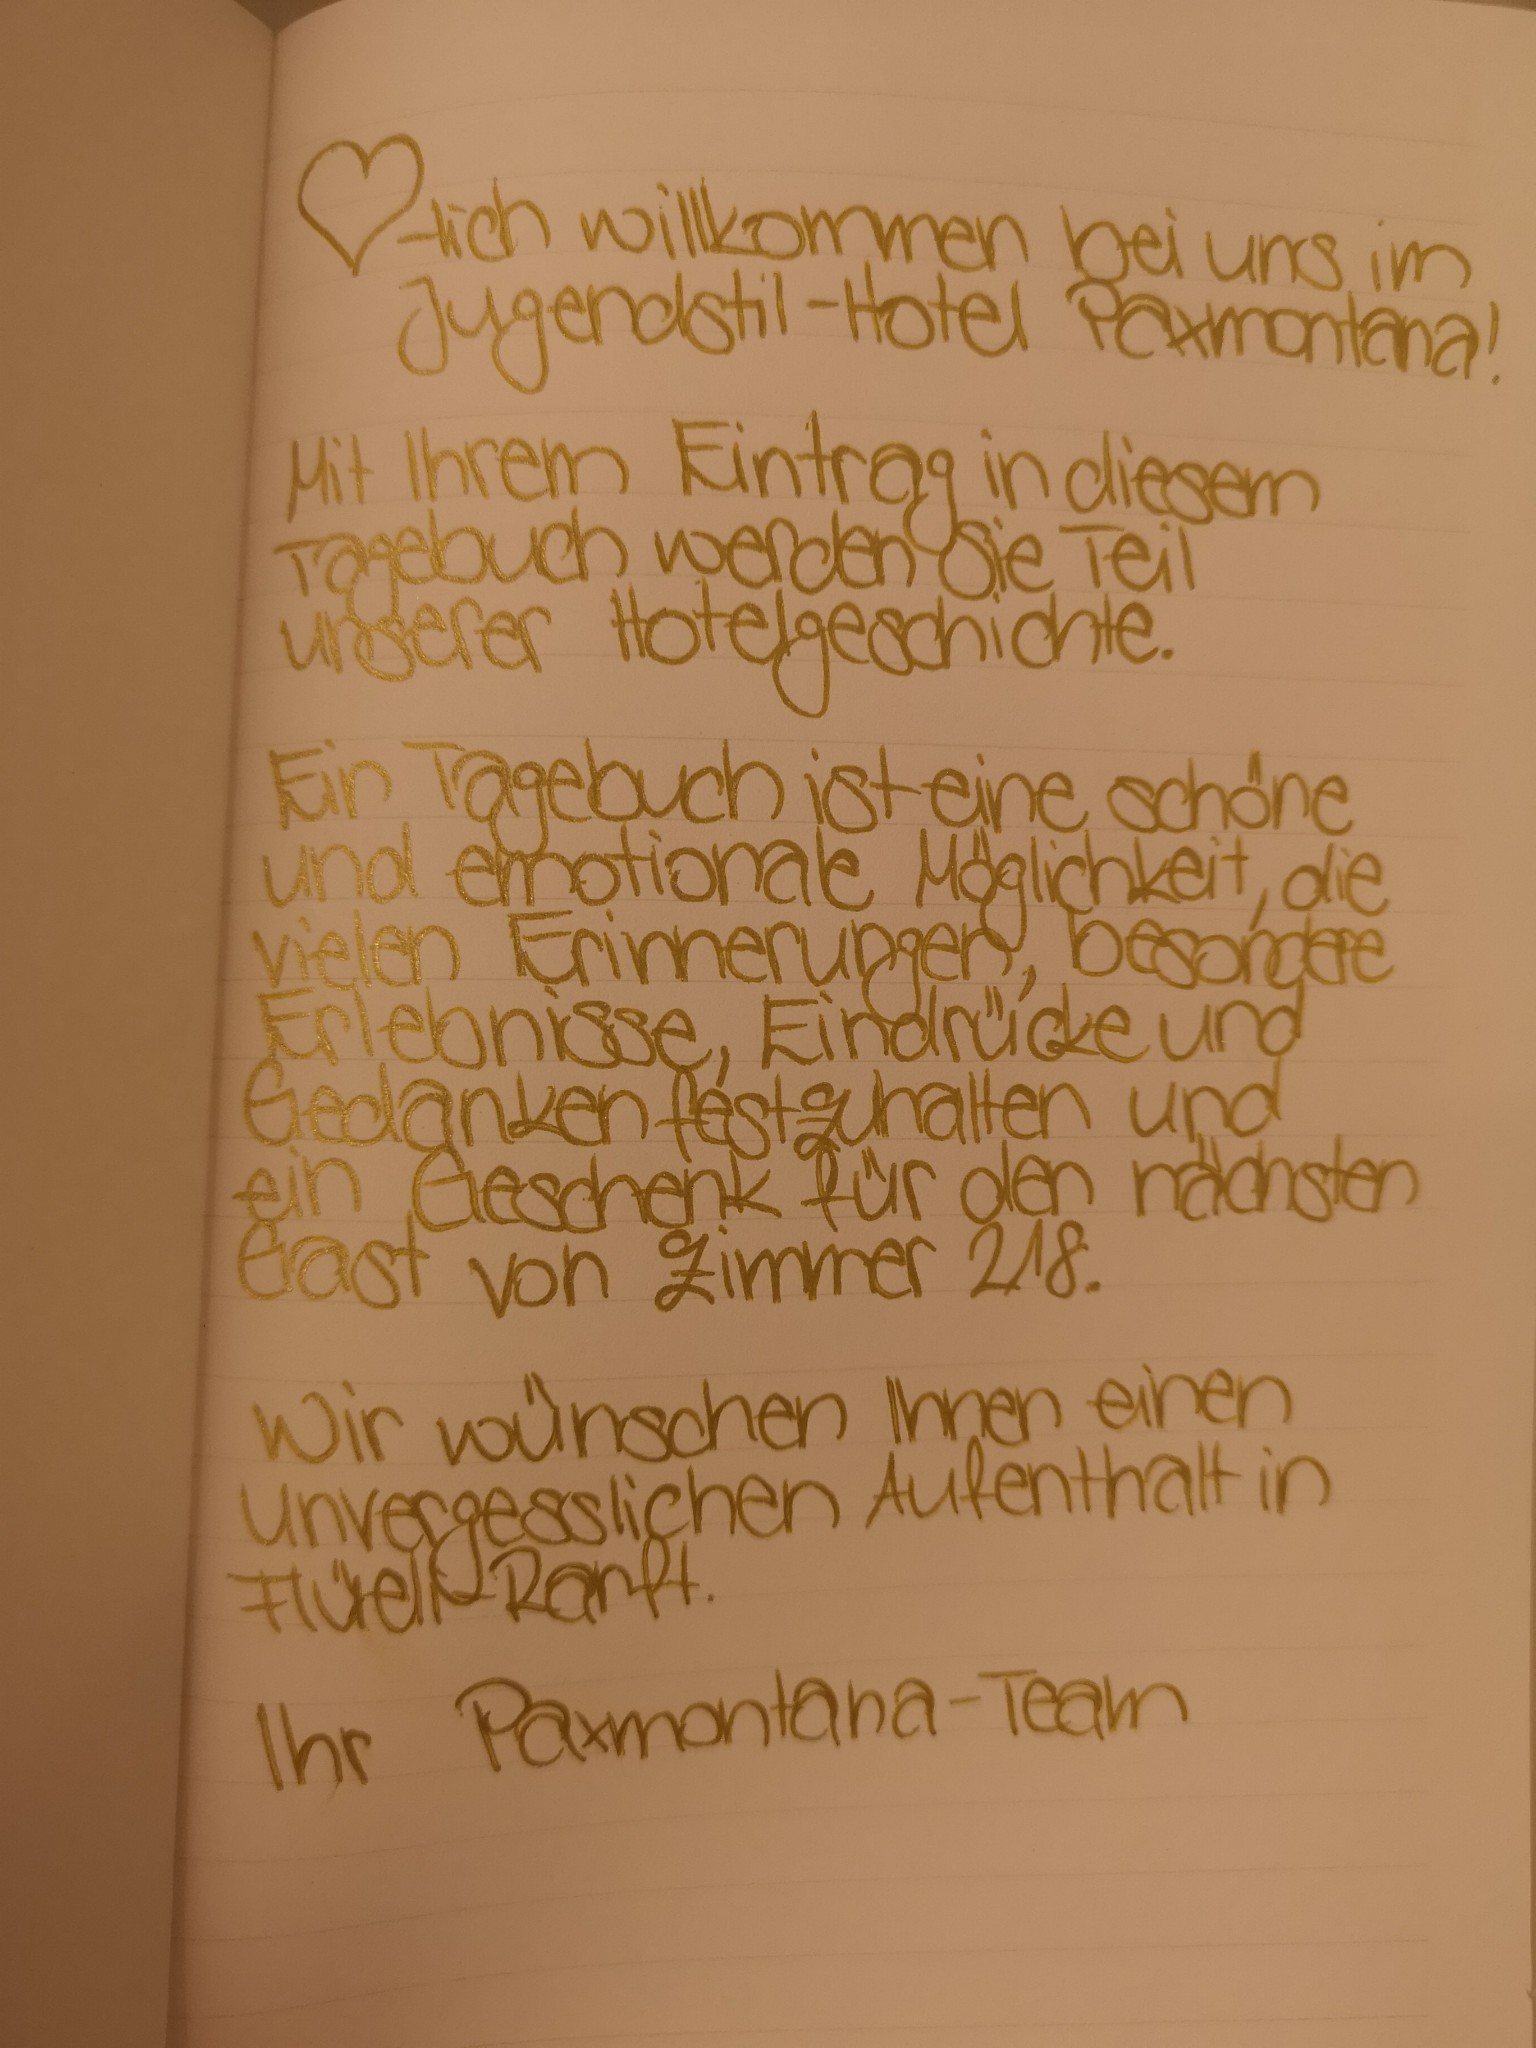 ♡-lich willkommen bei uns im
Jugendstil-Hotel Paxmontana!
Mit Ihrem Eintrag in diesem
Tagebuch werden Sie Teil
unserer Hotelgeschichte.
Ein Tagebuch ist eine schöne
und emotionale Möglichkeit, die
vielen Erinnerungen, besondere
Erlebnisse, Eindrücke und
Gedanken festzuhalten und
ein Geschenk für den nächsten
Gast von Zimmer 218.
Wir wünschen Ihnen einen
unvergesslichen Aufenthalt in
Flüeli-Ranft.
Ihr Paxmontana-Team